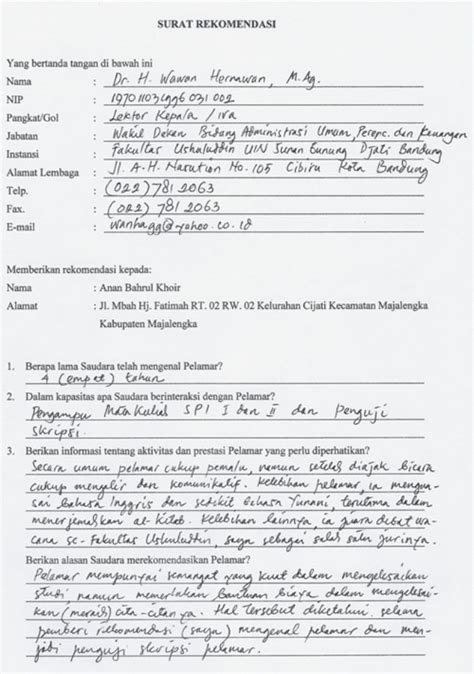 SURAT REKOMENDASI
Yang bertanda tangan di bawah ini
Nama : Dr. H. Wawan Hernawan, M.Ag.
NIP : 19701103 1996 031 002
Pangkat/Gol : Lektor Kepala / IVa
Jabatan : Wakil Dekan Bidang Administrasi Umum, Perenc. dan Keuangan
Instansi : Fakultas Ushuluddin UIN Sunan Gunung Djati Bandung
Alamat Lembaga : Jl. A.H. Nasution No. 105 Cibiru Kota Bandung
Telp. : (022) 781 2063
Fax. : (022) 781 2063
E-mail : wanhagg@yahoo.co.id
Memberikan rekomendasi kepada:
Nama : Anan Bahrul Khoir
Alamat : Jl. Mbah Hj. Fatimah RT. 02 RW. 02 Kelurahan Cijati Kecamatan Majalengka
Kabupaten Majalengka
1. Berapa lama Saudara telah mengenal Pelamar?
4 (empat) tahun
2. Dalam kapasitas apa Saudara berinteraksi dengan Pelamar?
Pengampu Mata Kuliah SPI I dan II dan Penguji
Skripsi.
3. Berikan informasi tentang aktivitas dan prestasi Pelamar yang perlu diperhatikan?
Secara umum pelamar cukup pemalu, namun setelah diajak bicara
cukup mengalir dan komunikatif. Kelebihan pelamar, ia mengua-
sai bahasa Inggris dan sedikit bahasa Yunani, terutama dalam
menerjemahkan al-Kitab. Kelebihan lainnya, ia juara debat wa-
cana se-Fakultas Ushuluddin, saya sebagai salah satu jurinya.
Berikan alasan Saudara merekomendasikan Pelamar?
Pelamar mempunyai semangat yang kuat dalam menyelesaikan
studi namun memerlukan bantuan biaya dalam menyelesai-
kan (meraih) cita-citanya. Hal tersebut diketahui, selama
pemberi rekomendasi (saya) mengenal pelamar dan men-
jadi penguji skripsi pelamar.